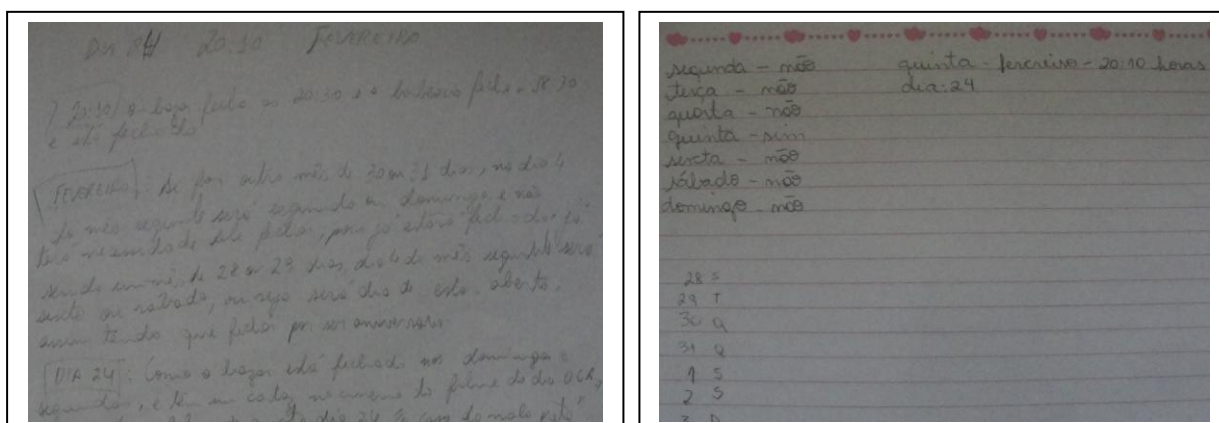 Dia 24 20:10 FEVEREIRO
20:30 o bazar fecha as 20:30 e a fecha 18:30
e está fechado
FEVEREIRO: Se for outro mês de 30 ou 31 dias, no dia 4
do mês seguinte será segunda ou domingo, e não
terá necessidade de fechar, pois já estará fechado. Já
sendo um mês de 28 ou 29 dias, dia 4 do mês seguinte será
sexta ou sabado, ou seja será dia de estar aberto,
assim tendo que fechar por ser aniversario
DIA 24: Como o bazar está fechado nos domingos e
segundas, e tem um cartaz no anuncio do filme do dia
dia 24
segunda - não
terça - não
quarta - não
quinta - sim
sexta - não
sábado - não
domingo - não
quinta - fevereiro - 20:10 horas
dia: 24
28 S
29 T
30 Q
31 Q
1 S
2 S
3 D